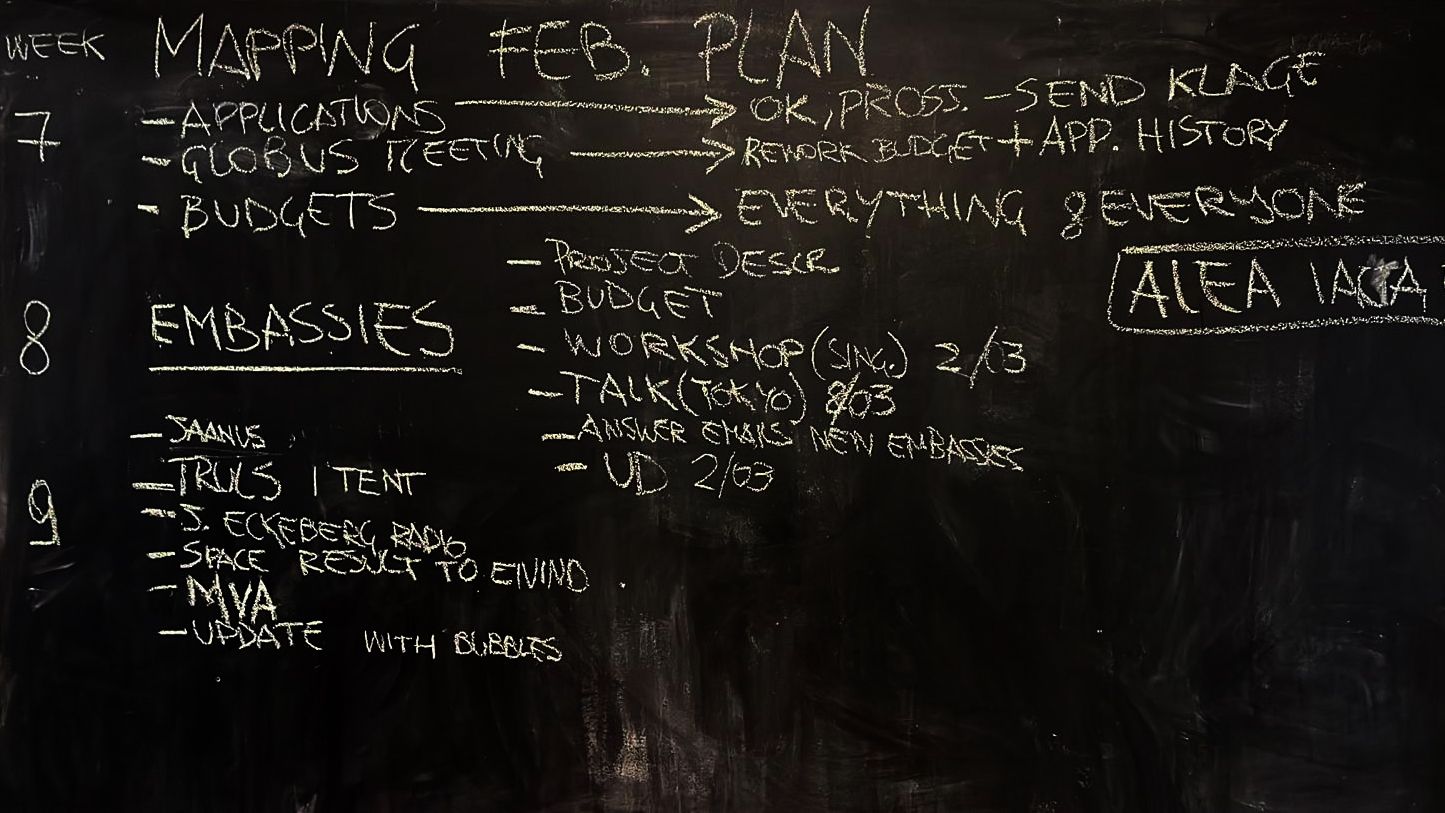 WEEK MAPPING FEB. PLAN
7
- APPLICATIONS → OK, PROSJ. - SEND KLAGE
- GLOBUS MEETING → REWORK BUDGET + APP. HISTORY
- BUDGETS → EVERYTHING & EVERYONE
ALEA IACTA
8 EMBASSIES
- PROJECT DESCR
- BUDGET
- WORKSHOP (SING.) 2/03
- TALK (TOKYO) 8/03
- ANSWER EMAILS NEW EMBASSIES
- UD 2/03
9
- JAANUS
- TRULS I TENT
- J. ECKEBERG RADIO
- SPACE RESULT TO EIVIND
- MVA
- UPDATE WITH BUBBLES